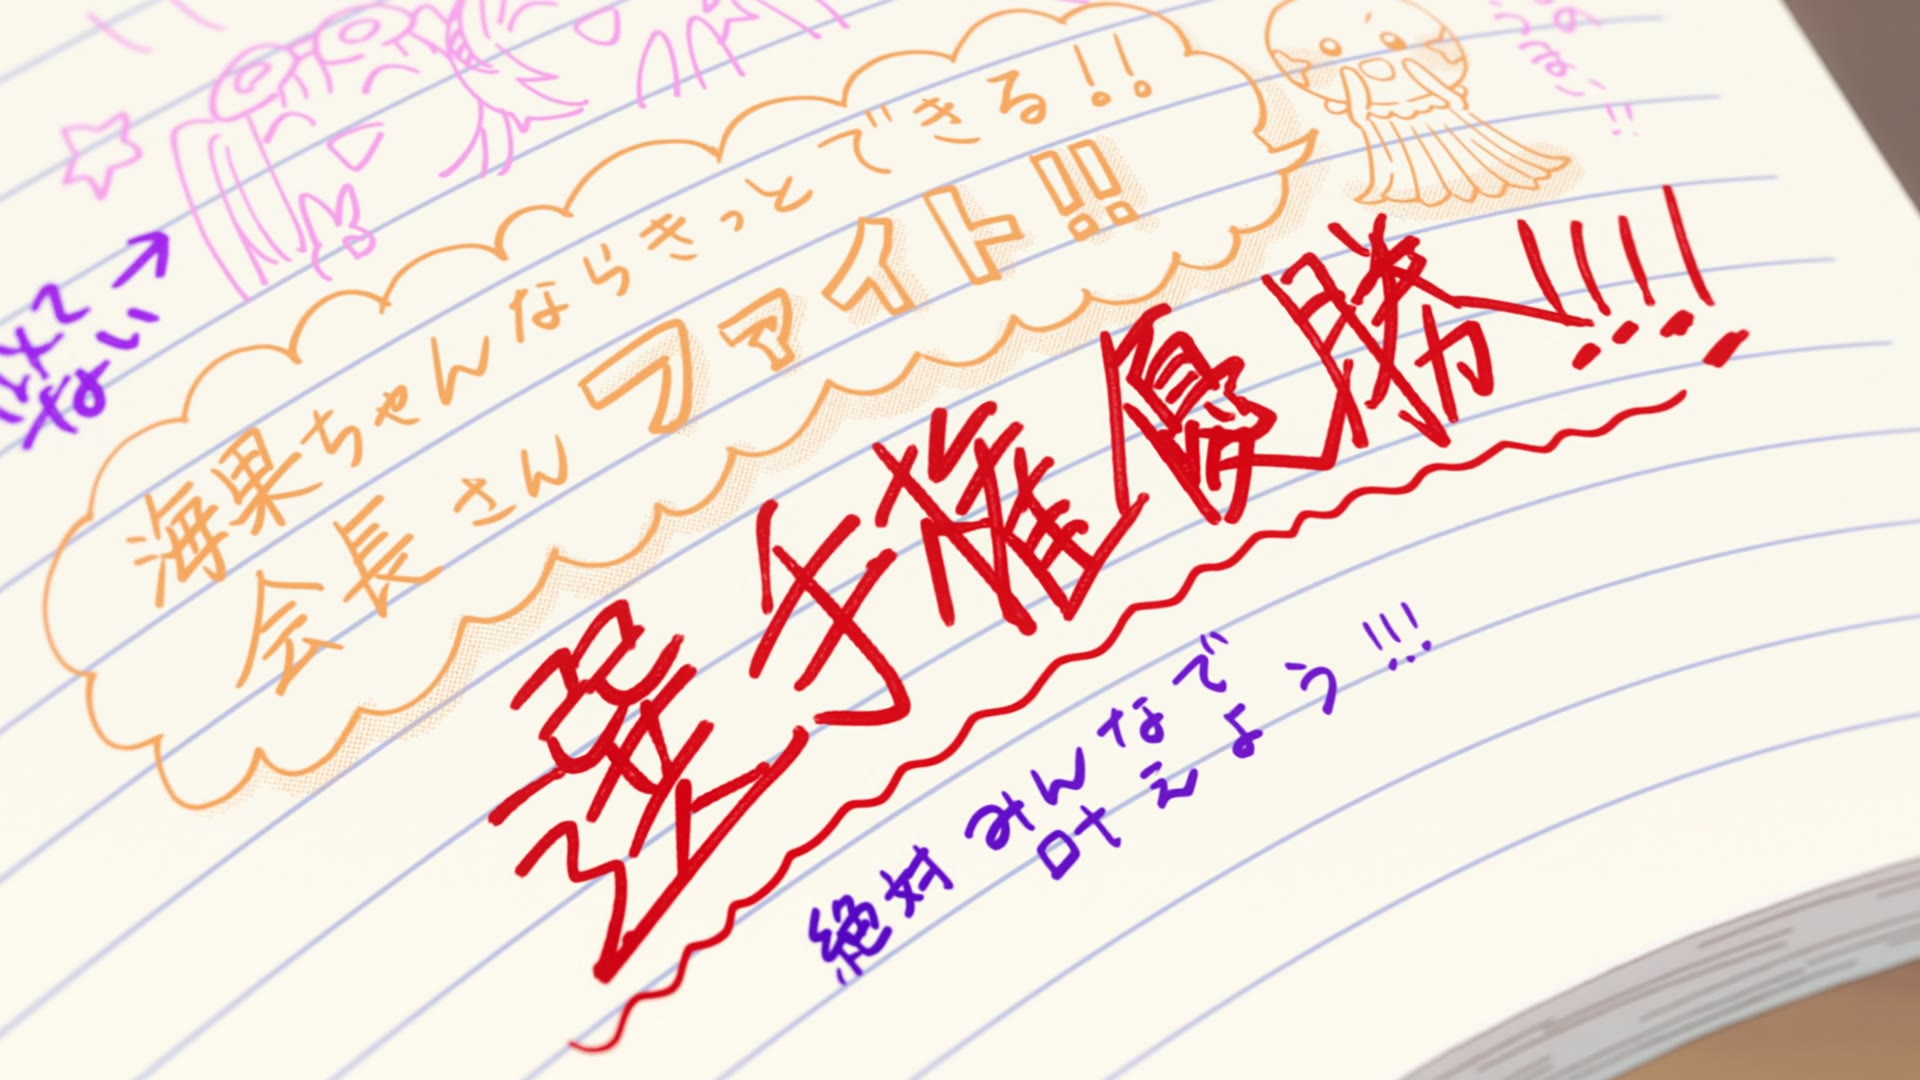 海果ちゃんならきっとできる!!
会長さん ファイト!!
選手権優勝!!!!
絶対みんなで
叶えよう!!!
ない